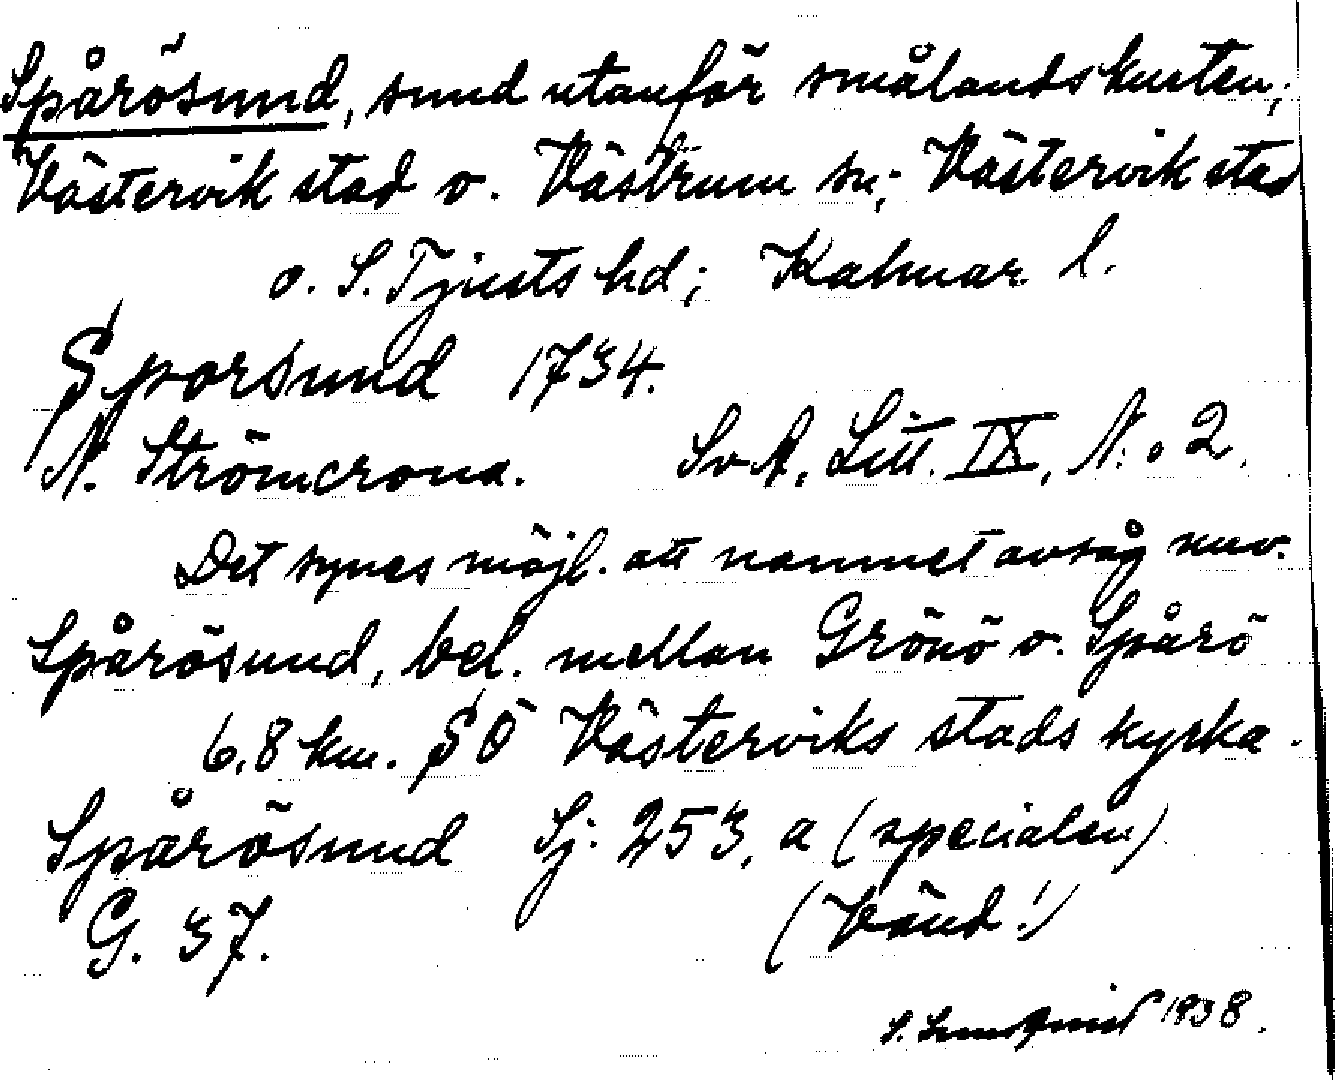 Spårösund, sund utanför smålandskusten;
Västervik stad o. Västrum sn; Västervik stad
o. S. Tjusts hd; Kalmar l.
Sporsund 1734.
N. Strömcrona. SvA, Litt. IX, N:o 2.
Det synes möjl. att namnet avsåg nuv.
Spårösund, bel. mellan Grönö o. Spårö
6,8 km. SÖ Västerviks stads kyrka.
Spårösund Sj: 253, a (specialen)
G. 37. (Vänd!)
1938.